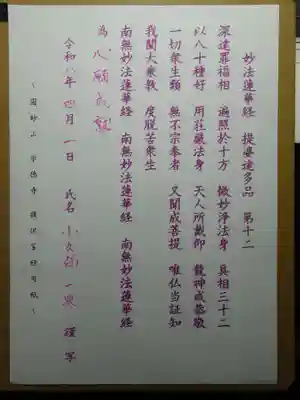 妙法蓮華経 提婆達多品 第十二
深達罪福相 遍照於十方 微妙浄法身 具相三十二
以八十種好 用荘厳法身 天人所戴仰 龍神咸恭敬
一切衆生類 無不宗奉者 又聞成菩提 唯仏当証知
我闡大乗教 度脱苦衆生
南無妙法蓮華経 南無妙法蓮華経 南無妙法蓮華経
為 心願成就
令和八年 四月 一日 氏名 小 一 謹写